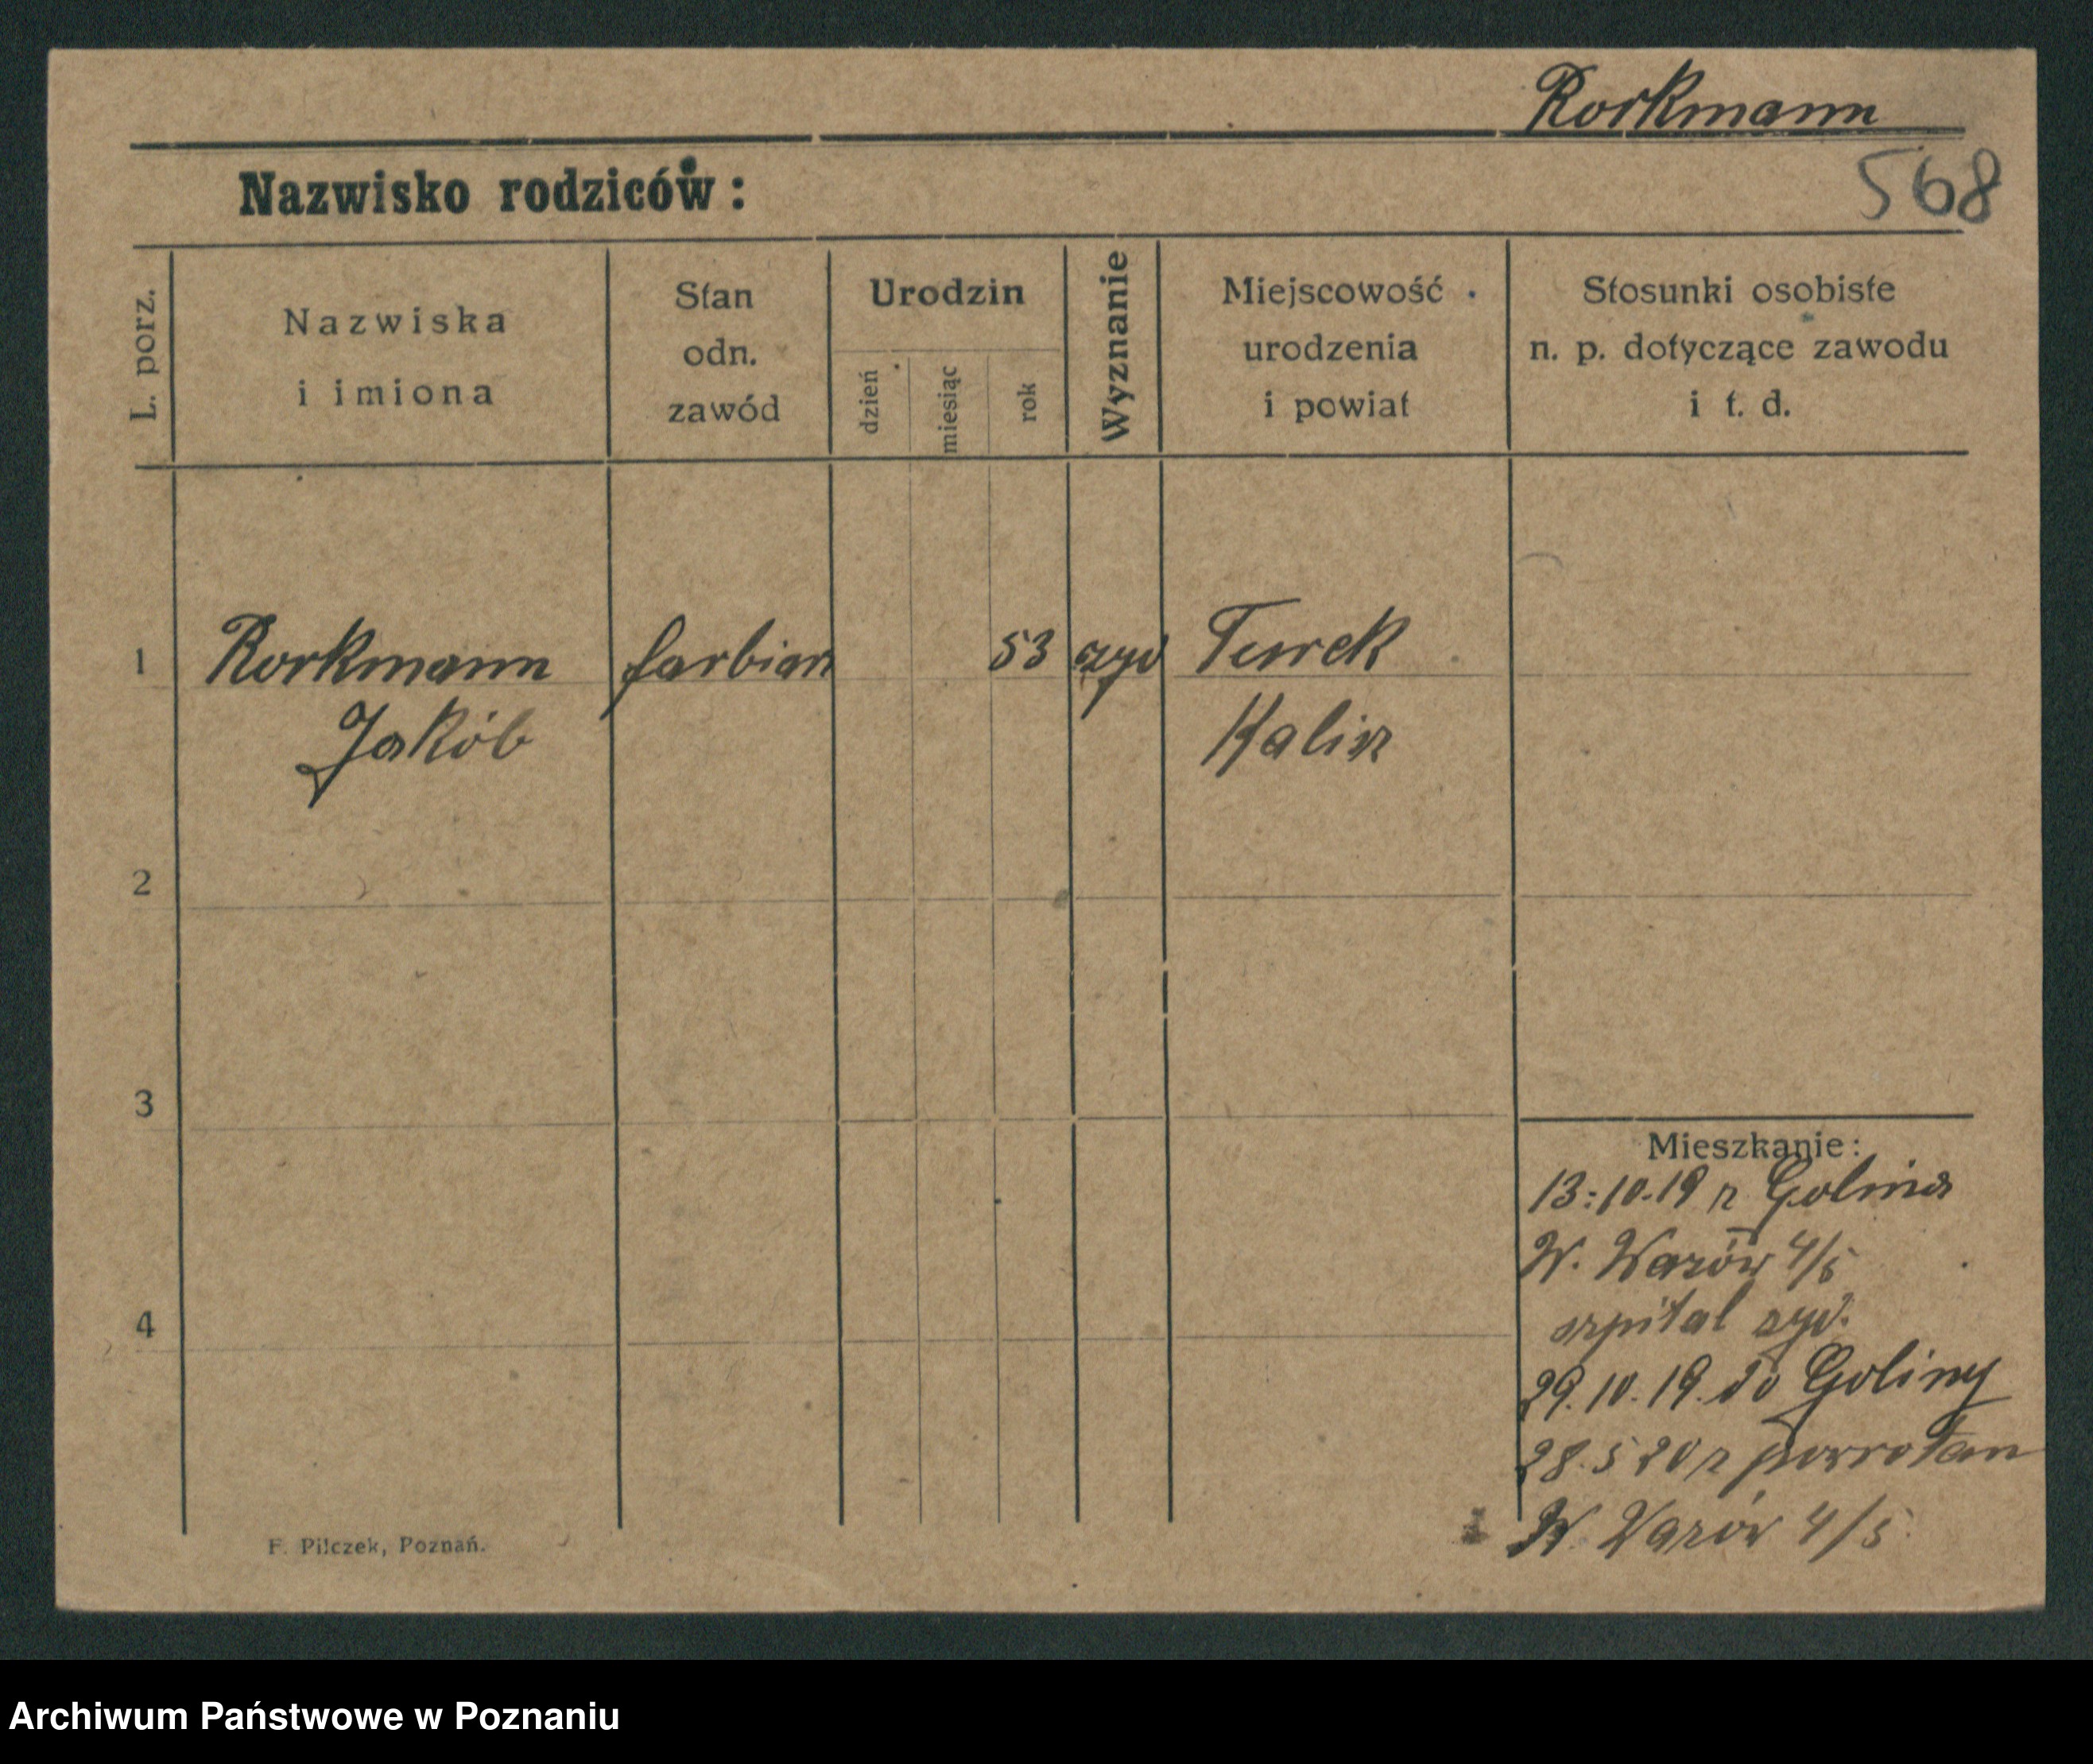 Rorkmann
568
Nazwisko rodziców:
L. porz.
Nazwiska
i imiona
Stan
odn.
zawód
Urodzin
dzień
miesiąc
rok
Wyznanie
Miejscowość
urodzenia
i powiat
Stosunki osobiste
n. p. dotyczące zawodu
i t. d.
1 Rorkmann farbiarz 53 żyd Turek
Jakób Kalisz
2
3
4
Mieszkanie:
13.10.19 z Golina
W. 4/5
szpital żyd.
29.10.19. do Goliny
28.5 20 z
W. 4/5
F. Pilczek, Poznań.
Archiwum Państwowe w Poznaniu